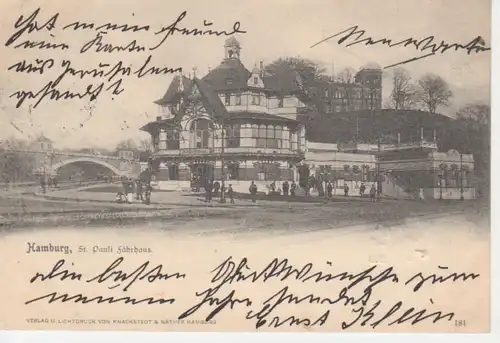 Hat mein Freund
eine Karte
aus Jerusalem
gesandt?
Hamburg, St. Pauli Fährhaus.
Die besten Glückwünsche zum
neuen Jahre sendet
Ernst Klein
VERLAG U. LICHTDRUCK VON KNACKSTEDT & NÄTHER HAMBURG
181